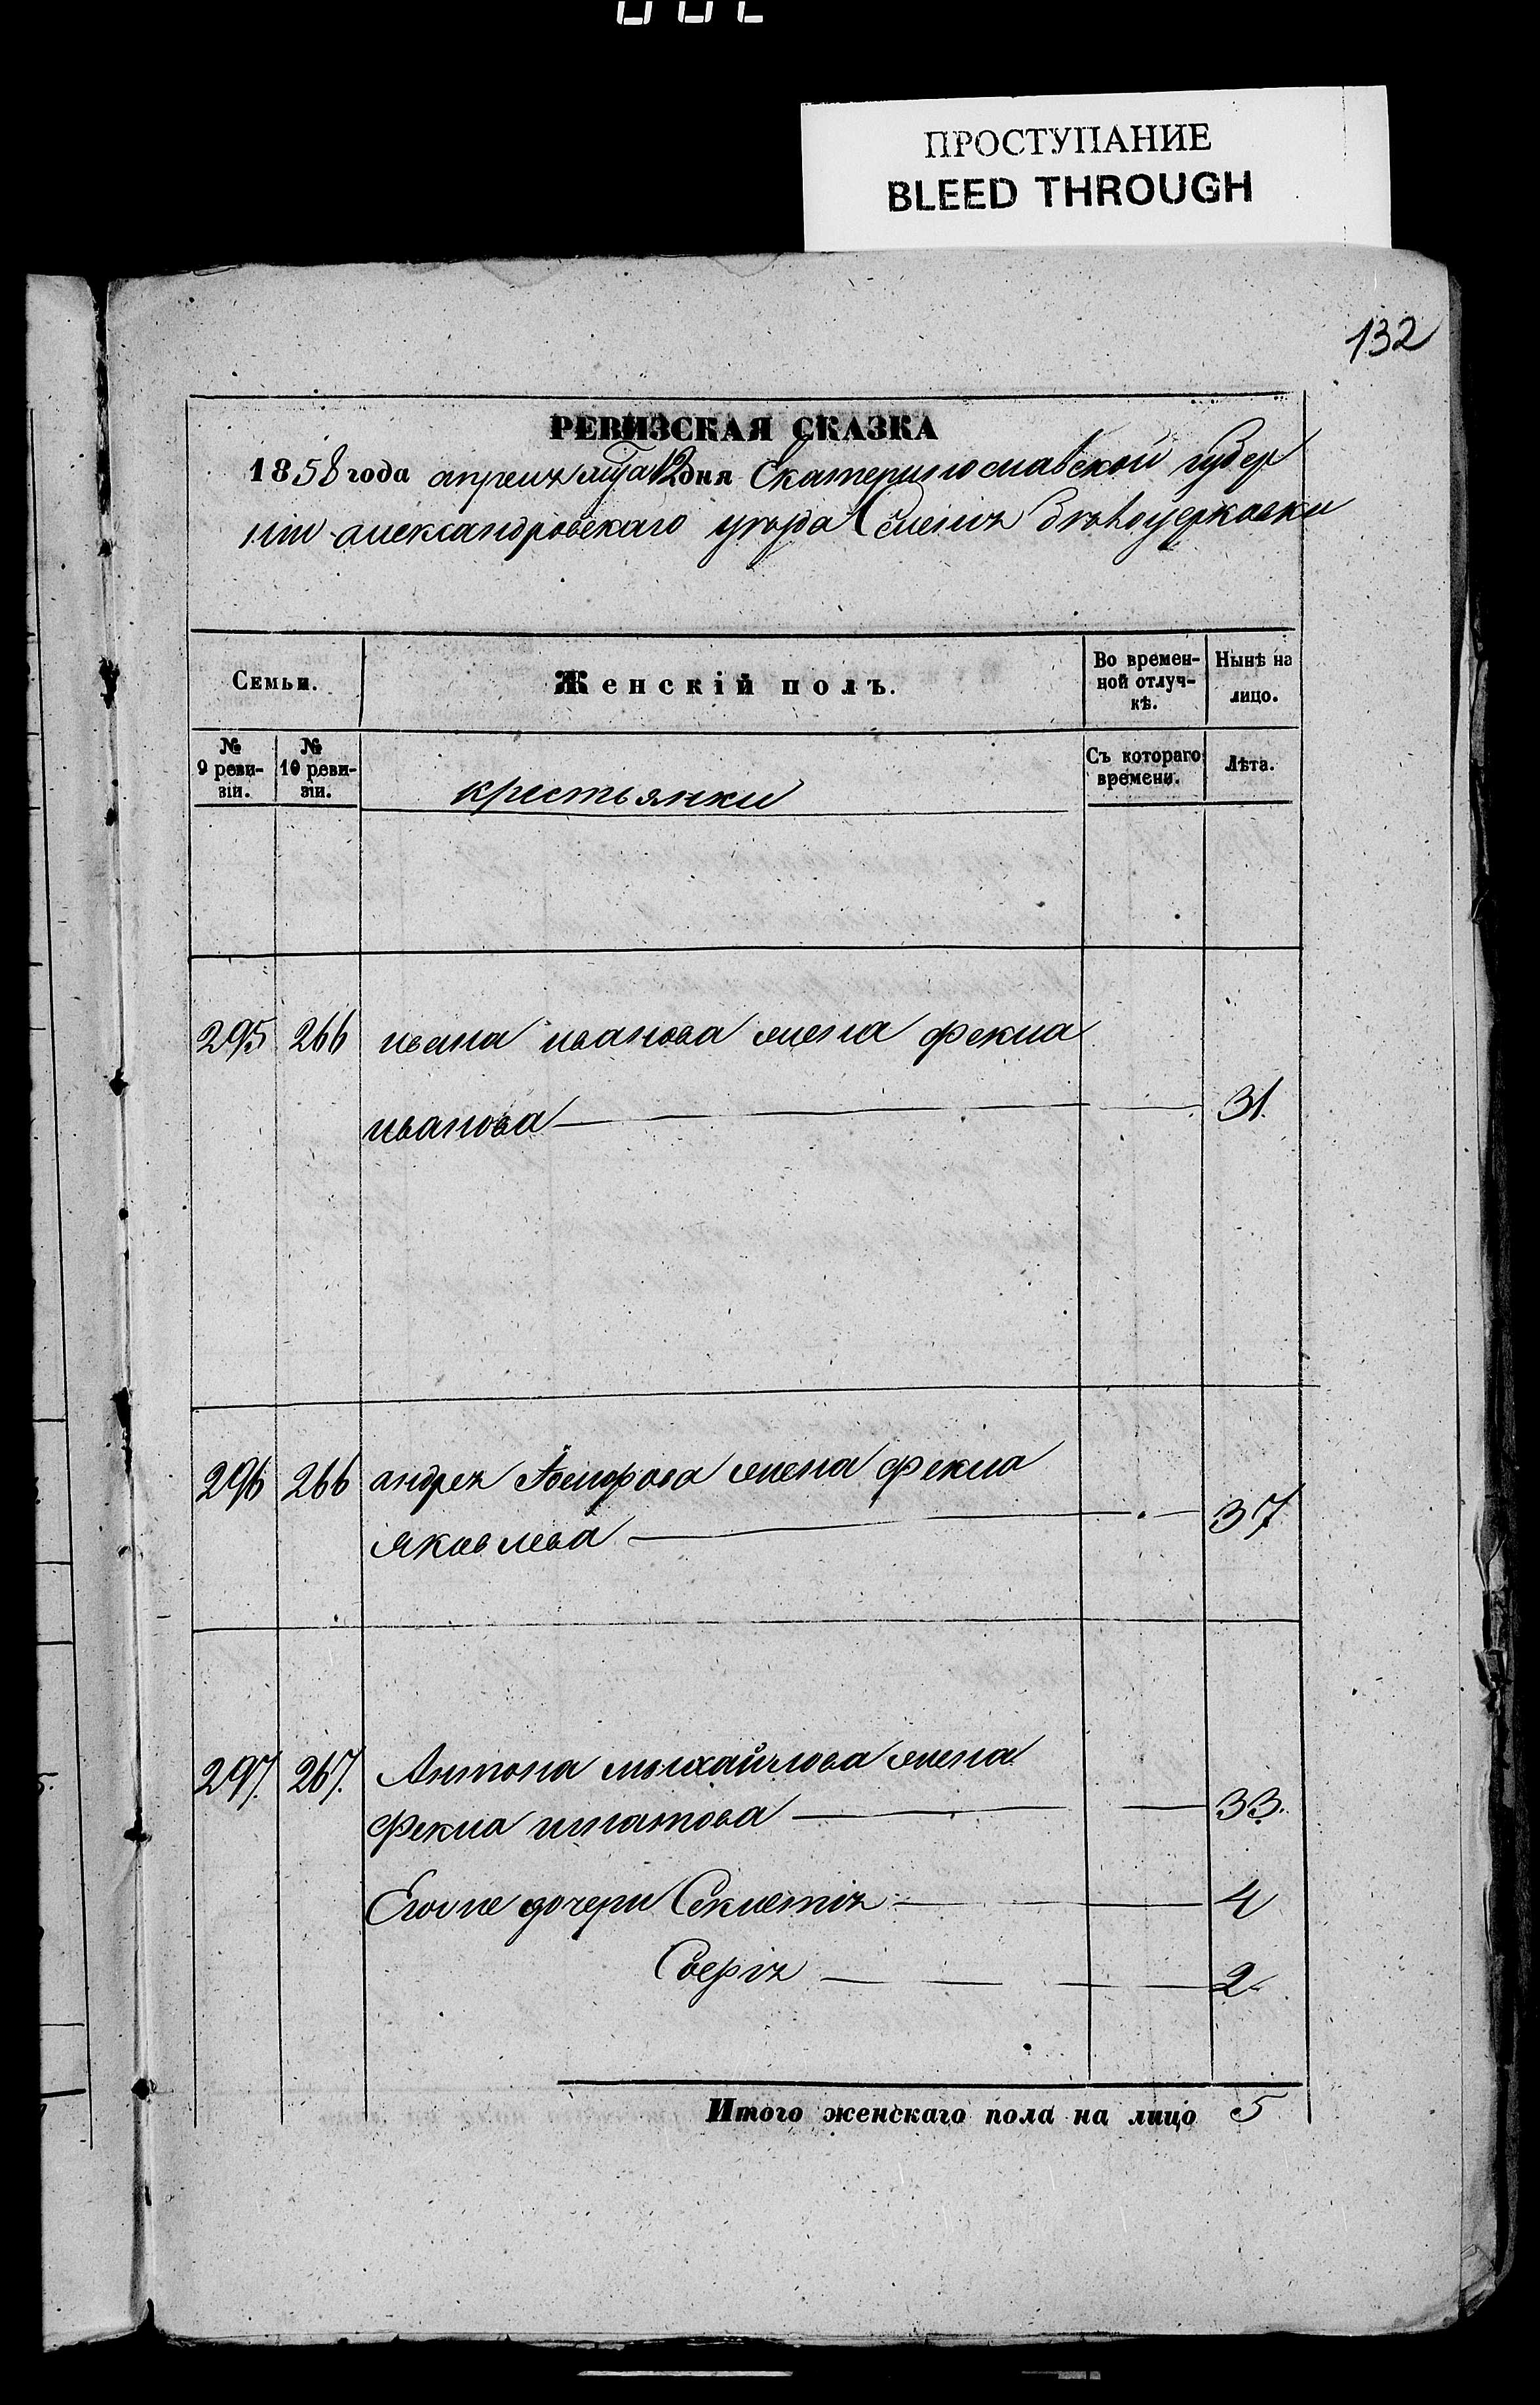 ПРОСТУПАНИЕ
BLEED THROUGH
132
РЕВИЗСКАЯ СКАЗКА
1858 года апреля мца 12 дня Екатеринославской губер
нии александровского уезда Селения Белоцерковки
Семьи.
Женскій полъ.
Во времен-
ной отлуч-
кѣ.
Нынѣ на
лицо.
№
9 реви-
зіи.
№
10 реви-
зіи.
крестьянки
Съ котораго
времени.
Лѣта.
295 266 ивана иванова жена фекла
иванова 31.
296 266 андрея жена фекла
яковлева 37
297. 267. Антона михайлова жена
Фекла игнатова 33.
Его же дочери Секлетія 4
Софія 2
Итого женскаго пола на лицо 5